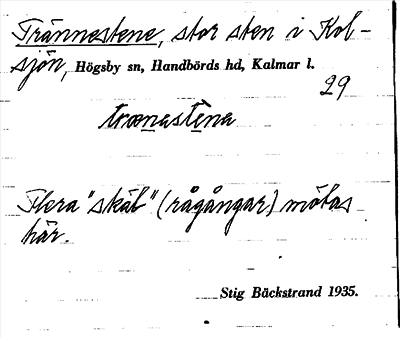 Trännestene, stor sten i Kol-
sjön, Högsby sn, Handbörds hd, Kalmar l.
29
trænastena
Flera "skäl" (rågångar) mötas
här.
Stig Bäckstrand 1935.